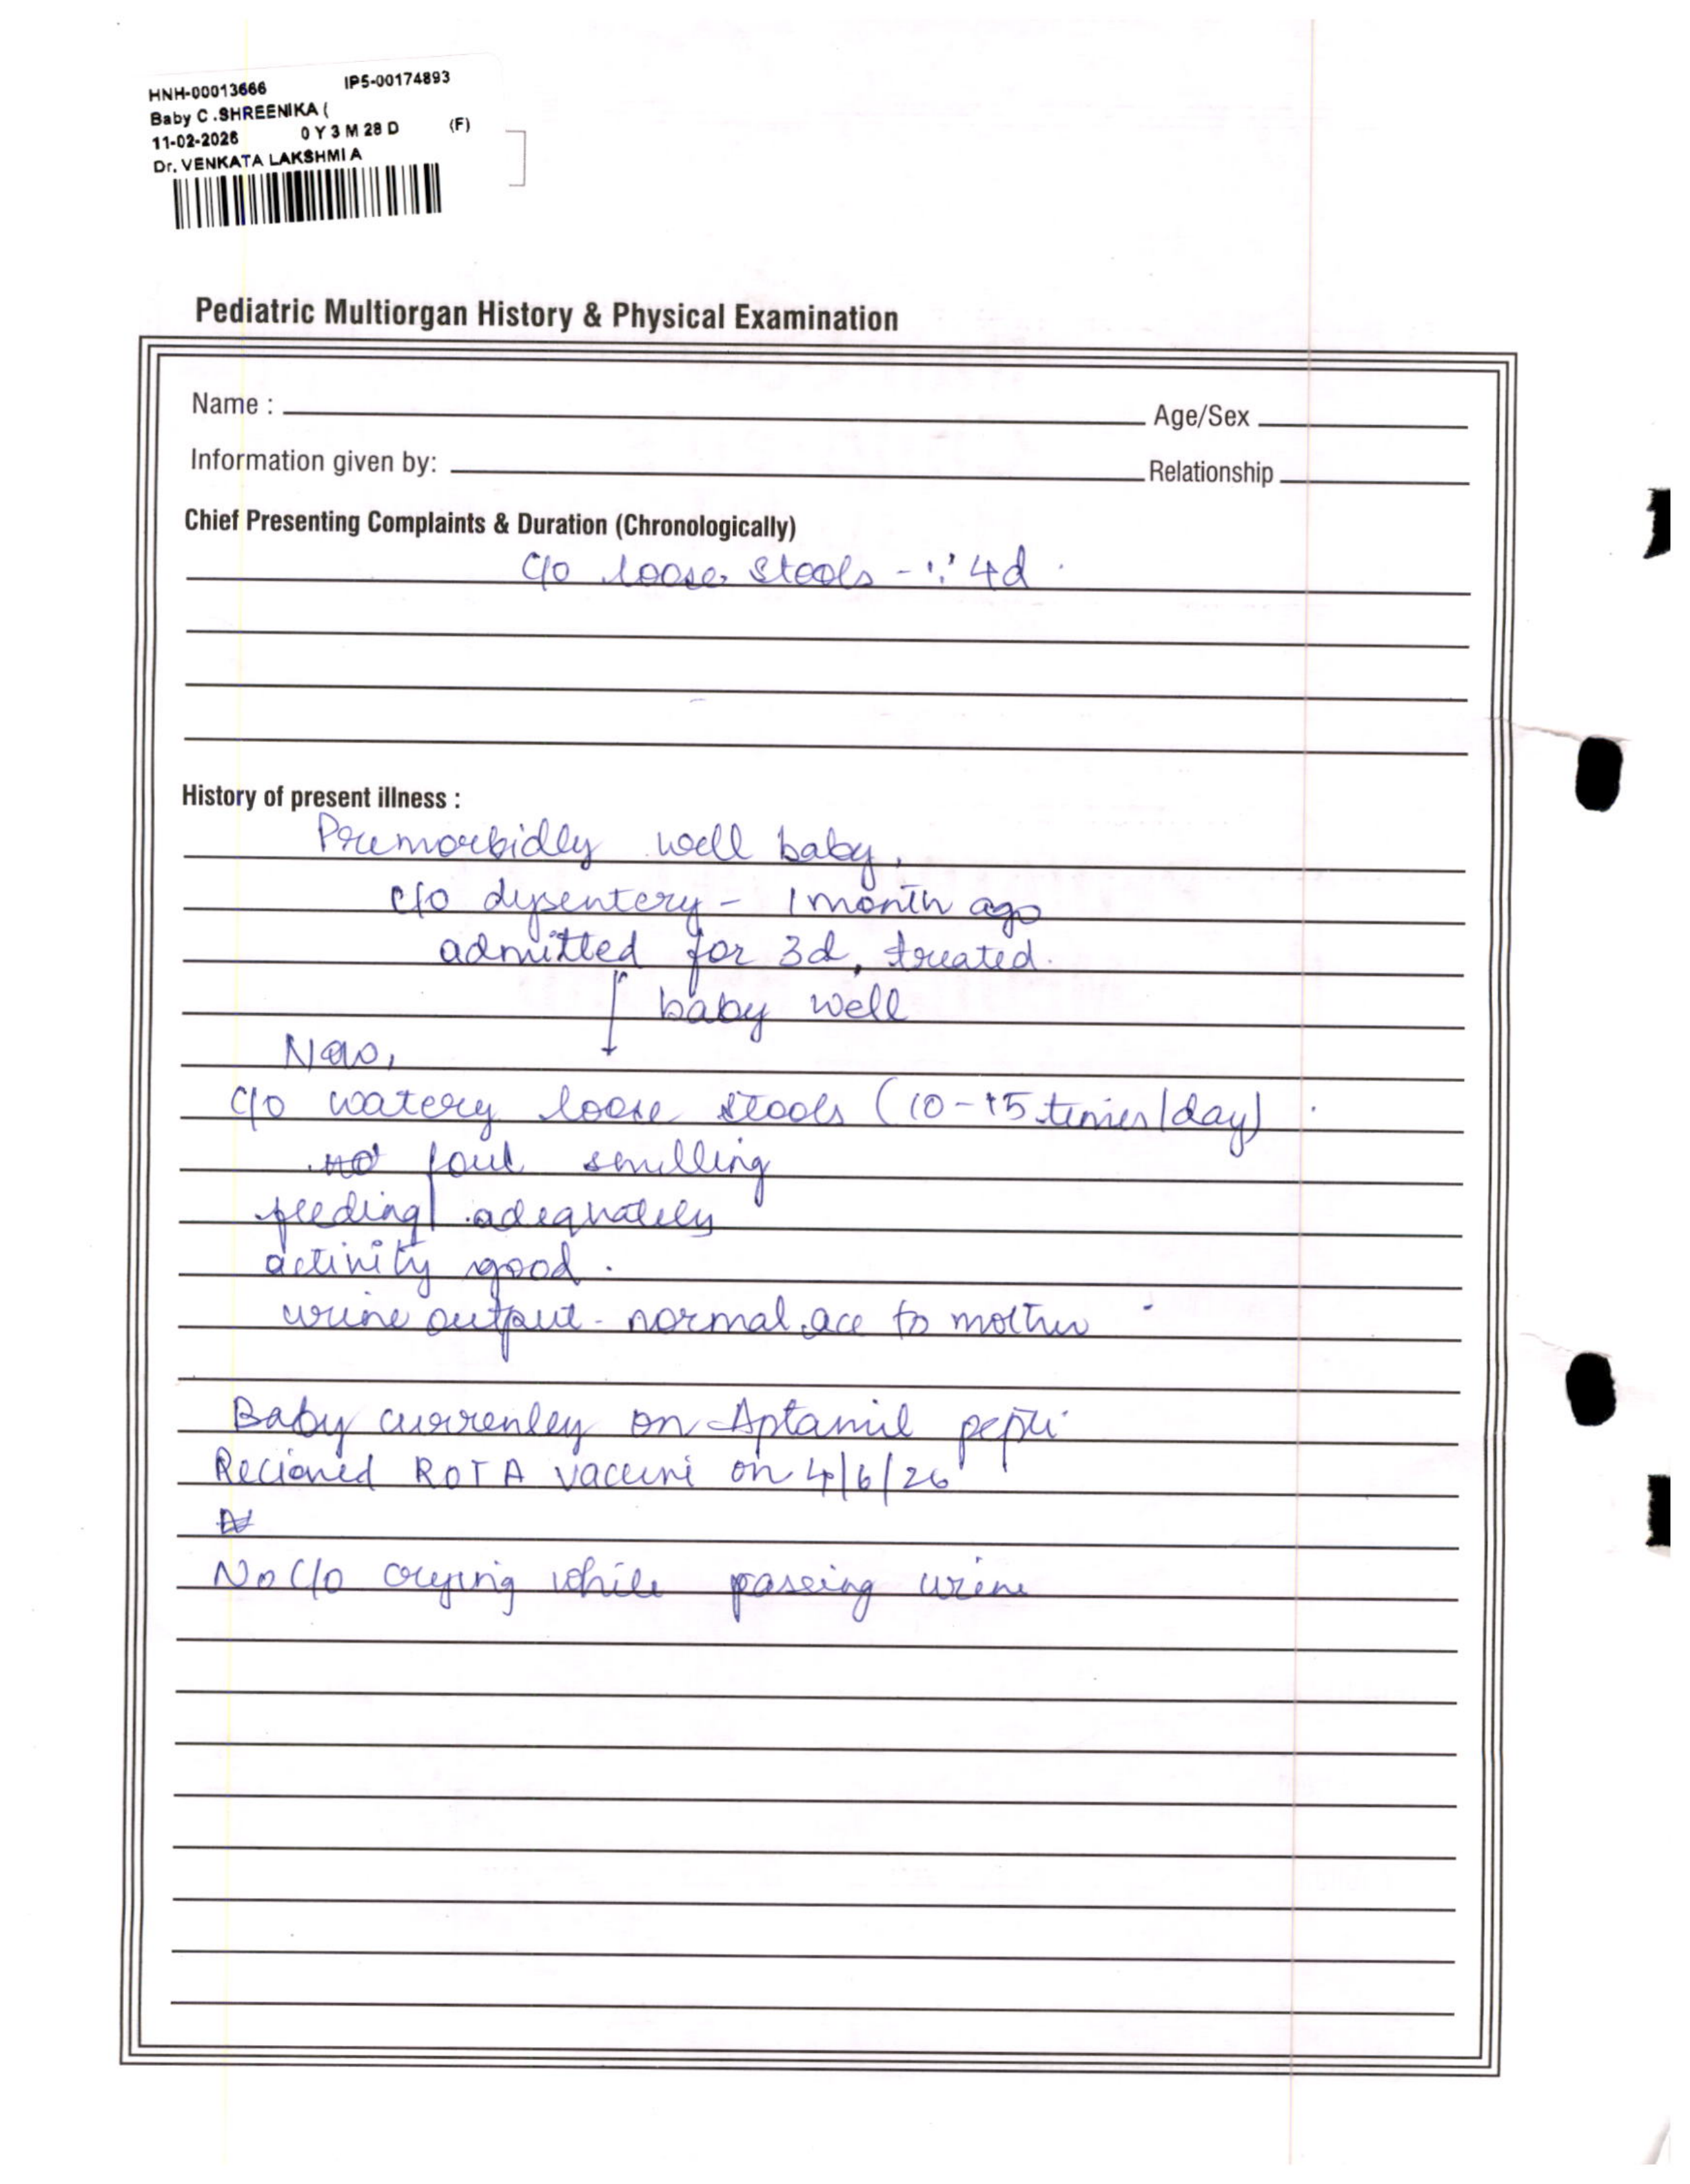 HNH-00013666 IP5-00174893
Baby C .SHREENIKA (
11-02-2026 0 Y 3 M 28 D (F)
Dr. VENKATA LAKSHMI A
Pediatric Multiorgan History & Physical Examination
Name : Age/Sex
Information given by: Relationship
Chief Presenting Complaints & Duration (Chronologically)
c/o loose stools - ∵ 4d
History of present illness :
Premorbidly well baby,
c/o dysentery - 1 month ago
admitted for 3d, treated.
↓ baby well
Now,
c/o watery loose stools (10-15 times/day)
foul smelling
feeding adequately
activity good.
urine output - normal acc to mother
Baby currenley on Aptamil pepti
Recieved ROTA vaccine on 4/6/26
No c/o crying while passing urine